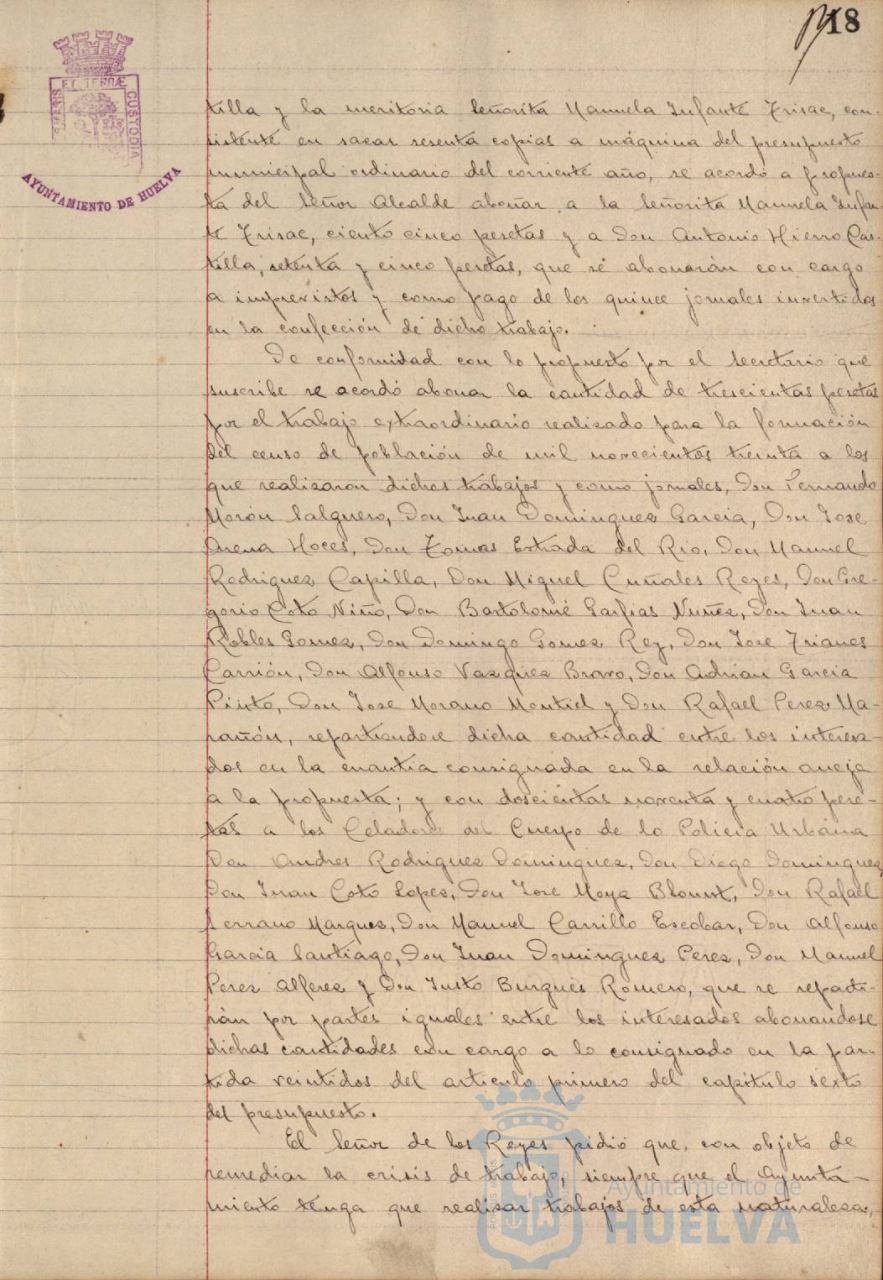 18
PORTUS MARIS ET TERRÆ CUSTODIA
AYUNTAMIENTO DE HUELVA
tilla y la meritoria Señorita Manuela Infante Frisac, con-
sistente en sacar sesenta copias a máquina del presupuesto
municipal ordinario del corriente año, se acordó a propues-
ta del Señor Alcalde abonar a la Señorita Manuela Infan-
te Frisac, ciento cinco pesetas y a Don Antonio Hierro Cas-
tilla, setenta y cinco pesetas, que se abonarán con cargo
a imprevistos y como pago de los quince jornales invertidos
en la confección de dicho trabajo.
De conformidad con lo propuesto por el Secretario que
suscribe se acordó abonar la cantidad de trescientas pesetas
por el trabajo extraordinario realizado para la formación
del censo de población de mil novecientos treinta a los
que realizaron dichos trabajos y como jornales, Don Fernando
Morón Salguero, Don Juan Dominguez Garcia, Don Jose
Arena Hoces, Don Tomas Estrada del Rio, Don Manuel
Rodriguez Capilla, Don Miguel Cuñales Reyes, Don Gre-
gorio Coto Niño, Don Bartolomé Garfias Nuñez, Don Juan
Robles Gomez, Don Domingo Gomez Rey, Don Jose Trianes
Carrión, Don Alfonso Vazquez Bravo, Don Adrian Garcia
Pinto, Don Jose Morano Montiel y Don Rafael Perez Ma-
rañón, repartiendose dicha cantidad entre los interesa-
dos en la cuantia consignada en la relación aneja
a la propuesta; y con doscientas noventa y cuatro pese-
tas a los Celadores del Cuerpo de la Policia Urbana
Don Andres Rodriguez Dominguez, Don Diego Dominguez,
Don Juan Coto Lopez, Don Jose Moya Blount, Don Rafael
Serrano Marquez, Don Manuel Carrillo Escobar, Don Alfonso
Garcia Santiago, Don Juan Dominguez Perez, Don Manuel
Perez Alferez y Don Justo Burgués Romero, que se reparti-
rán por partes iguales entre los interesados abonandose
dichas cantidades con cargo a lo consignado en la par-
tida veintidos del articulo primero del capitulo sexto
del presupuesto.
El Señor de los Reyes pidió que, con objeto de
remediar la crisis de trabajo, siempre que el Ayunta-
miento tenga que realizar trabajos de esta naturaleza,
Ayuntamiento de
HUELVA